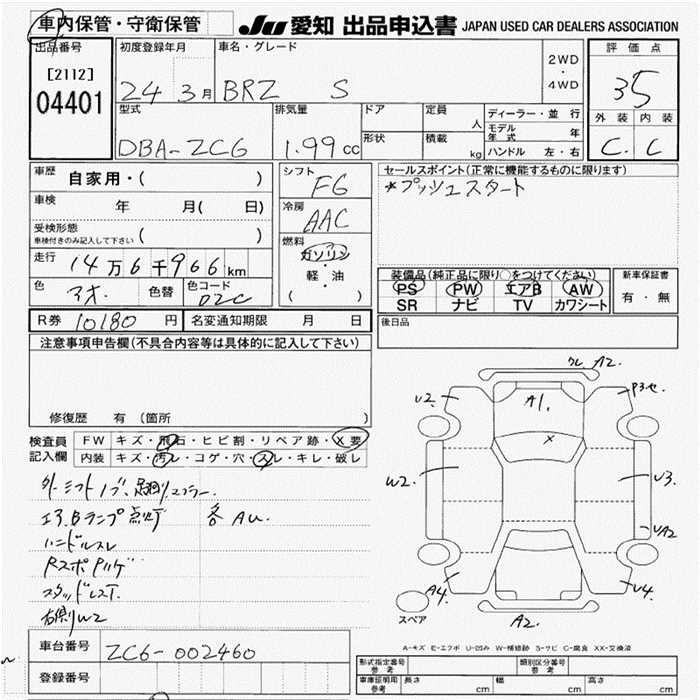 車内保管・守衛保管
JU 愛知 出品申込書 JAPAN USED CAR DEALERS ASSOCIATION
出品番号
[2112]
04401
初度登録年月
24 3月
車名・グレード
BRZ S
2WD
・
4WD
評価点
35
外装 内装
C. C
型式
DBA-ZC6
排気量
1.99cc
ドア
形状
定員 人
積載 kg
ディーラー・並行
モデル年式 年
ハンドル 左・右
車歴 自家用・( )
車検 年 月( 日)
受検形態
車検付きのみ記入して下さい ( )
走行 14万6千966km
色 色替
色コード
D2C
シフト
F6
冷房
AAC
燃料
ガソリン
・
軽・油
( )
セールスポイント(正常に機能するものに限ります)
*プッシュスタート
装備品(純正品に限り○をつけてください)
PS PW エアB AW
SR ナビ TV カワシート
新車保証書
有・無
後日品
R券 10180円 名変通知期限 月 日
注意事項申告欄(不具合内容等は具体的に記入して下さい)
修復歴 有 (箇所 )
検査員
記入欄
FW キズ・飛石・ヒビ割・リペア跡・X要
内装 キズ・汚レ・コゲ・穴・スレ・キレ・破レ
エアBランプ点灯 各AU.
ハンドルスレ
スタッドレスT.
右側W2
クレA2.
U2.
A1.
X
W2.
U3.
UA2
A4.
U4.
A2.
スペア
A-キズ E-エクボ U-凹み W-補修跡 S-サビ C-腐食 XX-交換済
車台番号 ZC6-002460
登録番号
型式指定番号
参考
類別区分番号
参考
車庫証明用
参考
長さ cm 幅 cm 高さ cm